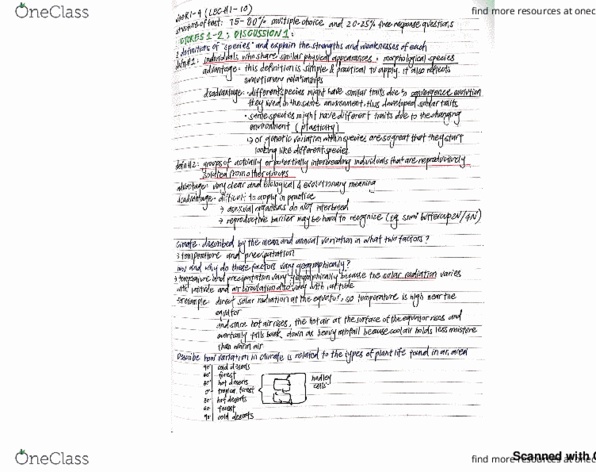 OneClass
find more resources at onec
WEEK 1-4 (LEC #1-10)
structure of test: 75-80% multiple choice and 20-25% free response questions
LECTURES 1-2; DISCUSSION 1:
2 definitions of "species" and explain the strengths and weaknesses of each
individuals who share similar physical appearances = morphological species
advantage - this definition is simple & practical to apply. it also reflects
evolutionary relationships
disadvantage - different species might have similar traits due to convergence evolution
they lived in the same environment thus developed similar traits
• same species might have different traits due to the changing
environment (plasticity)
↳ or genetic variation within species are so great that they start
looking like different species
groups of actually or potentially interbreeding individuals that are reproductively
isolated from other groups
advantage - very clear and biological & evolutionary meaning
disadvantage - difficult to apply in practice
→ asexual organisms do not interbreed
→ reproductive barrier may be hard to recognise (eg. some buttercup 2N/4N)
climate - described by the mean and annual variation in what two factors?
temperature and precipitation
how and why do those factors vary geographically?
temperature and precipitation vary geographically because the solar radiation varies
with latitude and air circulation also vary with latitude
example: direct solar radiation at the equator, so temperature is high near the
equator
and since hot air rises, the hot air at the surface of the equator rises and
eventually falls back down as heavy rainfall because cool air holds less moisture
than warm air
Describe how variation in climate is related to the types of plant life found in an area
90° cold deserts
60° forest
30° hot deserts
0° tropical forest
30° hot deserts
60° forest
90° cold deserts
hadley
cells
OneClass
find more resources at onec
Scanned with